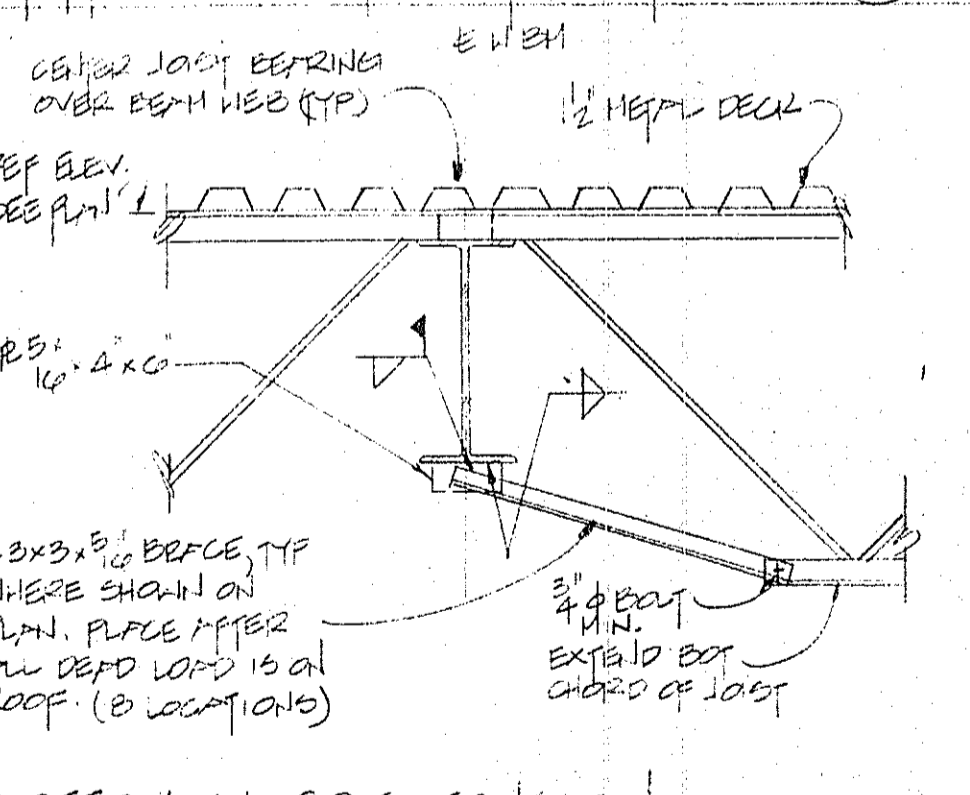 ℄ W BM
CENTER JOIST BEARING
OVER BEAM WEB (TYP)
1 1/2" METAL DECK
EF ELEV.
SEE PLAN
5/16" x 4" x 6"
3x3x5/16 BRACE, TYP
HERE SHOWN ON
LAN. PLACE AFTER
LL DEAD LOAD IS ON
OOF. (8 LOCATIONS)
3/4" φ BOLT
MIN.
EXTEND BOT
CHORD OF JOIST